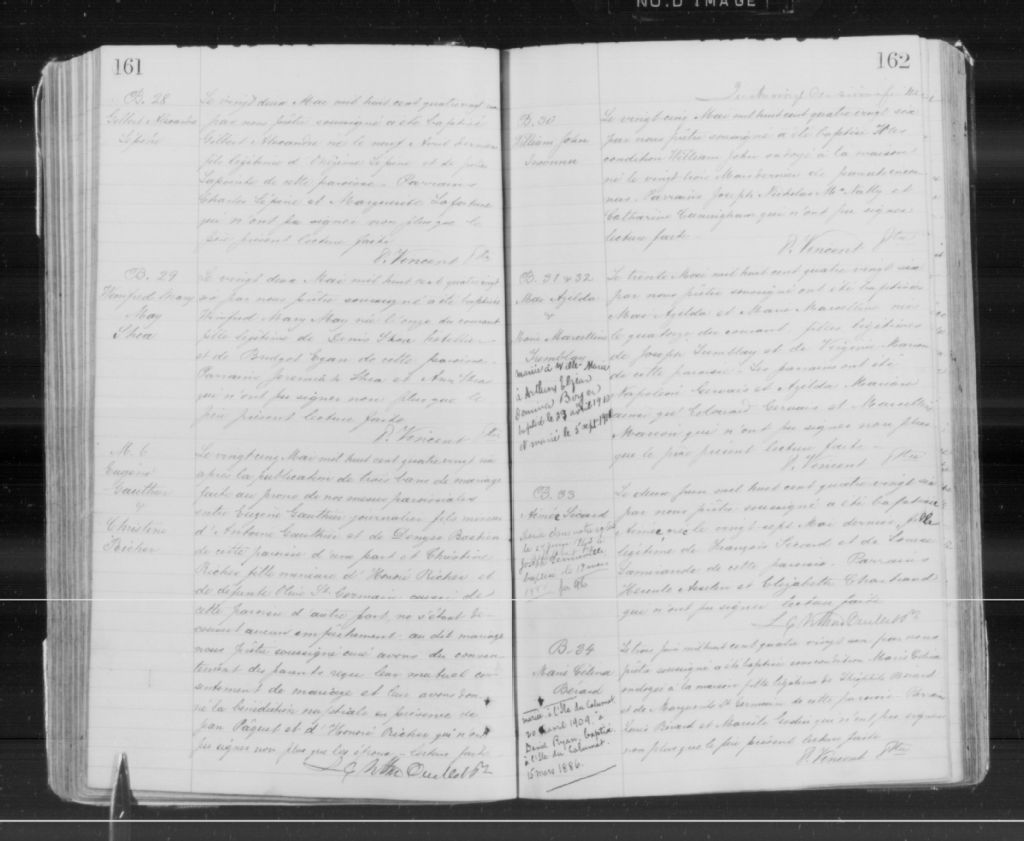 NO.D IMAGE
161
B. 28
Gilbert Alexandre
Lepine
Le vingt deux Mai mil huit cent quatre vingt six
par nous prêtre soussigné a été baptisé
Gilbert Alexandre né le neuf Avril dernier
fils légitime d'Onézime Lepine et de
Lapointe de cette paroisse. Parrains
Charles Lepine et Marguerite Lafortune
qui n'ont pu signer non plus que le
père présent lecture faite
P. Vincent Ptre
B. 29
Winifred Mary
May
Shea
Le vingt deux Mai mil huit cent quatre vingt
six par nous prêtre soussigné a été baptisée
Winifred Mary May née le onze du courant
fille légitime de Denis Shea hotellier
et de Bridget Egan de cette paroisse
Parrains Jeremiah Shea et Ann Shea
qui n'ont pu signer non plus que le
père présent lecture faite
P. Vincent Ptre
M. 6
Eugène
Gauthier
&
Christine
Richer
Le vingt cinq Mai mil huit cent quatre vingt six
après la publication de trois bans de mariage
faite au prone de nos messes paroissiales
entre Eugène Gauthier journalier fils mineur
d'Antoine Gauthier et de Denyse Bastien
de cette paroisse d'une part et Christine
Richer fille mineure d'Honoré Richer et
de défunte Olive St. Germain aussi de
cette paroisse d'autre part, ne s'étant dé-
couvert aucun empêchement au dit mariage
nous prêtre soussigné curé avons du consen-
tement des parents reçu leur mutuel con-
sentement de mariage et leur avons don-
né la bénédiction nuptiale en présence de
Jean Paquet et d'Honoré Richer qui n'ont
pu signer non plus que les époux - lecture faite
Ouellet Ptre
162
B. 30
William John
Le vingt cinq Mai mil huit cent quatre vingt six
par nous prêtre soussigné a été baptisé sous
condition William John ondoyé à la maison
né le vingt trois Mars dernier de parents incon-
nus. Parrains Joseph Nicholas McNally et
Catharine Cunningham qui n'ont pu signer
lecture faite -
P. Vincent Ptre
B. 31 & 32
Mae Azilda
&
Marie Marcelline
Tremblay
mariée à Ville-Marie
à Anthony Elzéar
Boyer
baptisé le 23 août
et marié le 5 sept.
Le trente Mai mil huit cent quatre vingt six
par nous prêtre soussigné ont été baptisées
Mae Azilda et Marie Marcelline nées
le quatorze du courant, filles légitimes
de Joseph Tremblay et de Virginie Marion
de cette paroisse. Les parrains ont été
Napoléon Gervais et Azilda Marion
ainsi que Edouard Gervais et Marcelline
Marion qui n'ont pu signer non plus
que le père présent lecture faite -
P. Vincent Ptre
B. 33
Aimée Secard
Joseph
baptisé le 19 mars
Le deux Juin mil huit cent quatre vingt six
par nous prêtre soussigné a été baptisée
Aimée née le vingt sept Mai dernier fille
légitime de François Secard et de Louise
Lamirande de cette paroisse. Parrains
et Elizabeth Chartrand
qui n'ont pu signer lecture faite
Ouellet Ptre
B. 34
Marie Célina
Bérard
mariée à l'Ile du Calumet
20 avril 1909, à
David Ryan, baptisé
à l'Ile du Calumet,
15 mars 1886.
Le trois Juin mil huit cent quatre vingt six par nous
prêtre soussigné a été baptisée sous condition Marie Célina
ondoyée à la maison fille légitime de Théophile Bérard
et de Marguerite St. Germain de cette paroisse. Parrain
Louis Bérard et Marcile Godin qui n'ont pu signer
non plus que le père présent lecture faite
P. Vincent Ptre